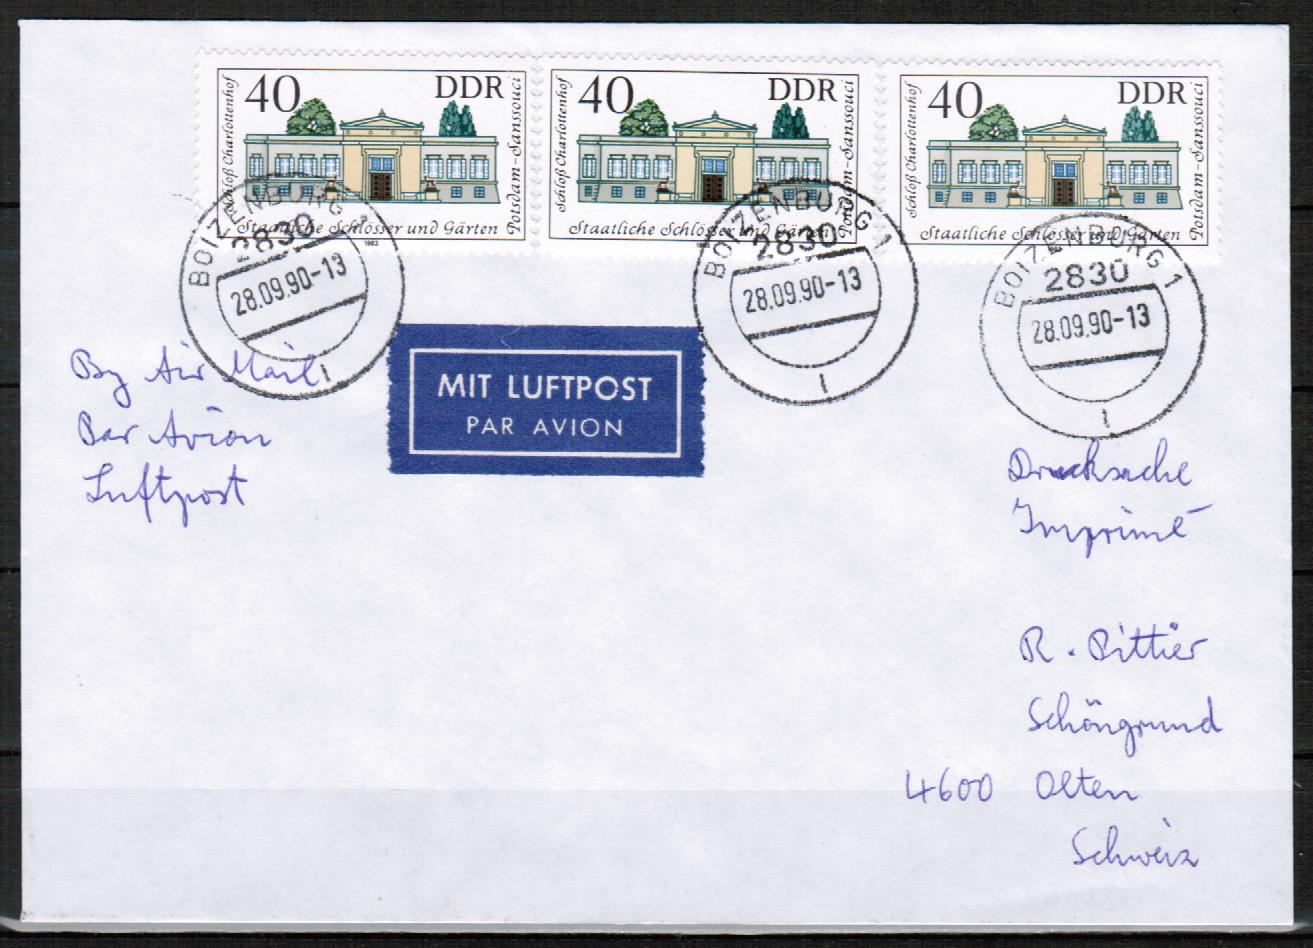 40 DDR
Schloß Charlottenhof
Potsdam-Sanssouci
Staatliche Schlösser und Gärten
1983
40 DDR
Schloß Charlottenhof
Potsdam-Sanssouci
Staatliche Schlösser und Gärten
40 DDR
Schloß Charlottenhof
Potsdam-Sanssouci
Staatliche Schlösser und Gärten
BOIZENBURG 1
2830
28.09.90-13
l
BOIZENBURG 1
2830
28.09.90-13
l
BOIZENBURG 1
2830
28.09.90-13
l
By Air Mail
Par Avion
Luftpost
MIT LUFTPOST
PAR AVION
Drucksache
Imprimé
R. Pittier
Schöngrund
4600 Olten
Schweiz